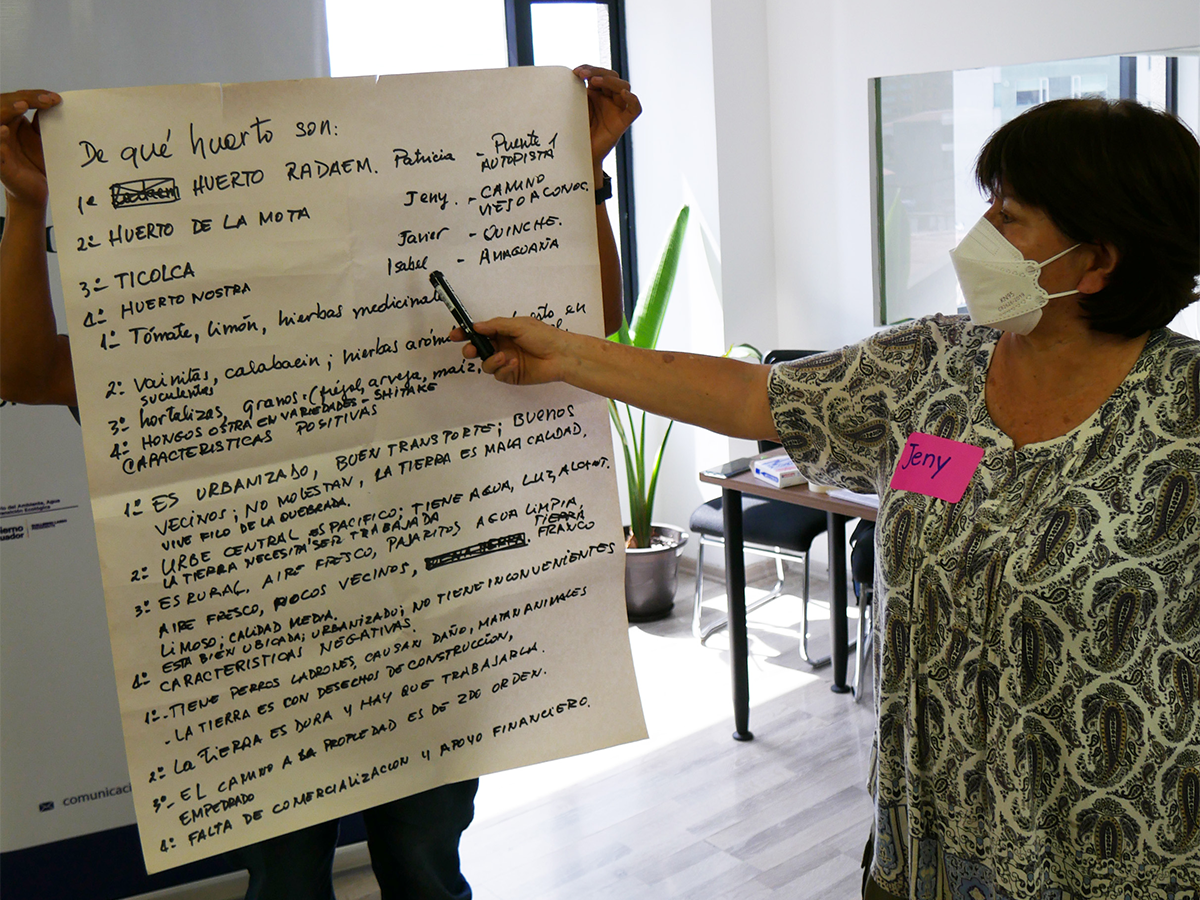 De qué huerto son:
1º HUERTO RADAEM. Patricia - Puente 1
AUTOPISTA
2º HUERTO DE LA MOTA Jeny. - CAMINO
VIEJO A CONOC.
3º TICOLCA Javier - QUINCHE.
4º HUERTO NOSTRA Isabel - AMAGUAÑA
1º Tómate, limón, hierbas medicinale
2º vainitas, calabacin; hierbas aróm en
suculentas
3º hortalizas, granos. (fréjol, arveja, maíz,
4º HONGOS OSTRA EN VARIEDADES - SHITAKE
CARACTERISTICAS POSITIVAS
1º ES URBANIZADO, BUEN TRANSPORTE; BUENOS
VECINOS; NO MOLESTAN, LA TIERRA ES MALA CALIDAD.
VIVE FILO DE LA QUEBRADA.
2º URBE CENTRAL ES PACIFICO; TIENE AGUA, LUZ, ALCANT.
LA TIERRA NECESITA SER TRABAJADA
3º ES RURAL, AIRE FRESCO, PAJARITOS, AGUA LIMPIA
AIRE FRESCO, POCOS VECINOS, TIERRA FRANCO
LIMOSO; CALIDAD MEDIA.
4º ESTA BIEN UBICADA; URBANIZADO; NO TIENE INCONVENIENTES
CARACTERISTICAS NEGATIVAS.
1º - TIENE PERROS LADRONES, CAUSAN DAÑO, MATAN ANIMALES
- LA TIERRA ES CON DESECHOS DE CONSTRUCCION,
2º La TIERRA ES DURA Y HAY QUE TRABAJARLA.
3º - EL CAMINO A LA PROPIEDAD ES DE 2DO ORDEN.
EMPEDRADO
4º FALTA DE COMERCIALIZACION Y APOYO FINANCIERO.
Jeny
comunicaci